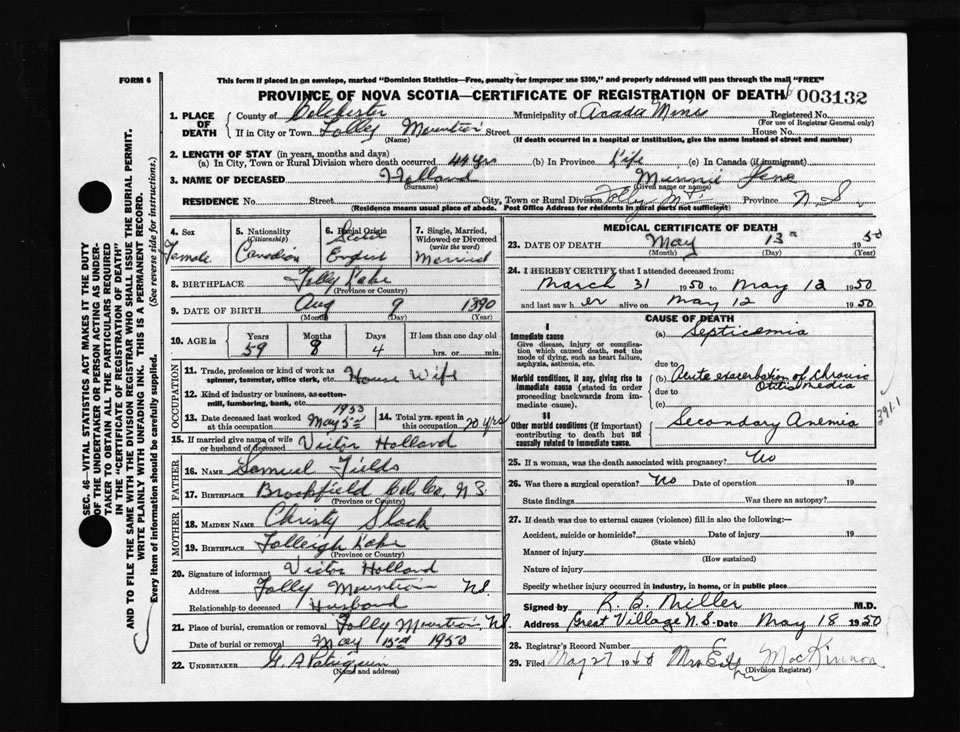 FORM 6
This form if placed in an envelope, marked "Dominion Statistics—Free, penalty for improper use $300," and properly addressed will pass through the mail "FREE"
PROVINCE OF NOVA SCOTIA—CERTIFICATE OF REGISTRATION OF DEATH 003132
1. PLACE OF DEATH
County of Colchester Municipality of Acadia Mines Registered No.
(For use of Registrar General only)
If in City or Town Folly Mountain Street House No.
(Name) (If death occurred in a hospital or institution, give the name instead of street and number)
2. LENGTH OF STAY (in years, months and days)
(a) In City, Town or Rural Division where death occurred 44 yrs (b) In Province Life (c) In Canada (if immigrant)
3. NAME OF DECEASED Holland Minnie Jene
(Surname) (Given name or names)
RESIDENCE No. Street City, Town or Rural Division Folly Mt. Province N.S.
(Residence means usual place of abode. Post Office Address for residents in rural parts not sufficient)
4. Sex Female
5. Nationality (Citizenship) Canadian
6. Racial Origin English
7. Single, Married, Widowed or Divorced (write the word) Married
8. BIRTHPLACE Folly Lake
(Province or Country)
9. DATE OF BIRTH Aug 9 1890
(Month) (Day) (Year)
10. AGE in Years 59 Months 8 Days 4 If less than one day old hrs. or min.
OCCUPATION
11. Trade, profession or kind of work as spinner, teamster, office clerk, etc. House Wife
12. Kind of industry or business, as cotton-mill, lumbering, bank, etc.
13. Date deceased last worked at this occupation May 5th 1950
14. Total yrs. spent in this occupation 20 yrs
15. If married give name of wife or husband of deceased Victor Holland
FATHER
16. NAME Samuel Fields
17. BIRTHPLACE Brookfield Col. Co. N.S.
(Province or Country)
MOTHER
18. MAIDEN NAME Christy Slack
19. BIRTHPLACE Folleigh Lake
(Province or Country)
20. Signature of informant Victor Holland
Address Folly Mountain N.S.
Relationship to deceased Husband
21. Place of burial, cremation or removal Folly Mountain, N.S.
Date of burial or removal May 15th 1950
22. UNDERTAKER G. A. Patriquin
(Name and address)
MEDICAL CERTIFICATE OF DEATH
23. DATE OF DEATH May 13th 1950
(Month) (Day) (Year)
24. I HEREBY CERTIFY that I attended deceased from:
March 31 1950 to May 12 1950
and last saw her alive on May 12 1950
CAUSE OF DEATH
I
Immediate cause
Give disease, injury or complication which caused death, not the mode of dying, such as heart failure, asphyxia, asthenia, etc.
(a) Septicemia
due to
Morbid conditions, if any, giving rise to immediate cause (stated in order proceeding backwards from immediate cause).
(b) Acute exacerbation of chronic Otitis Media
due to
(c)
391.1
II
Other morbid conditions (if important) contributing to death but not causally related to immediate cause.
Secondary Anemia
25. If a woman, was the death associated with pregnancy? No
26. Was there a surgical operation? No Date of operation 19
State findings Was there an autopsy?
27. If death was due to external causes (violence) fill in also the following:—
Accident, suicide or homicide? Date of injury 19
(State which)
Manner of injury
(How sustained)
Nature of injury
Specify whether injury occurred in industry, in home, or in public place
Signed by R. B. Miller M.D.
Address Great Village N.S. Date May 18 1950
28. Registrar's Record Number
29. Filed May 27 19 Mrs MacKinnon
(Division Registrar)
SEC. 46—VITAL STATISTICS ACT MAKES IT THE DUTY
OF THE UNDERTAKER OR PERSON ACTING AS UNDER-
TAKER TO OBTAIN ALL THE PARTICULARS REQUIRED
IN THE "CERTIFICATE OF REGISTRATION OF DEATH"
AND TO FILE THE SAME WITH THE DIVISION REGISTRAR WHO SHALL ISSUE THE BURIAL PERMIT.
WRITE PLAINLY WITH UNFADING INK. THIS IS A PERMANENT RECORD.
Every item of information should be carefully supplied. (See reverse side for instructions.)